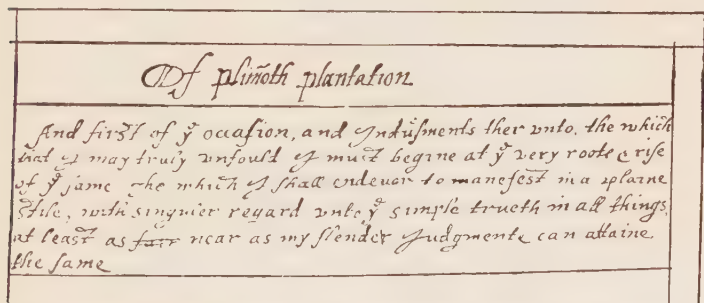 Of plim̃oth plantation
And first of yͤ occasion, and Indusments ther vnto. the which
that I may truly vnfould I must begine at yͤ very roote & rise
of yͤ same The which I shall endeuor to manefest in a plaine
stile, with singuler regard vnto yͤ simple trueth in all things,
at least as fair near as my slender Judgmente can attaine
the same